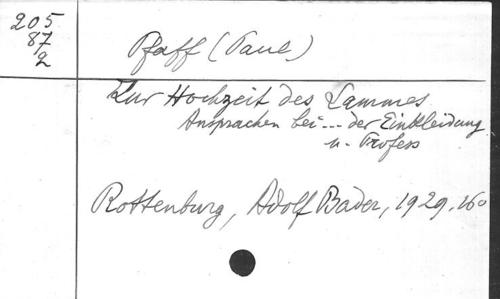 205
87
2
Pfaff (Paul)
Zur Hochzeit des Lammes
Ansprachen bei ... der Einkleidung
u. Profess
Rottenburg, Adolf Bader, 1929. 16°